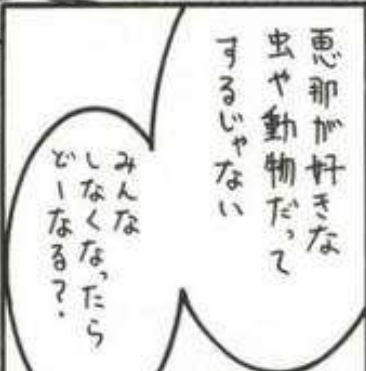 恵那が好きな
虫や動物だって
するじゃない
みんな
しなくなったら
どーなる?